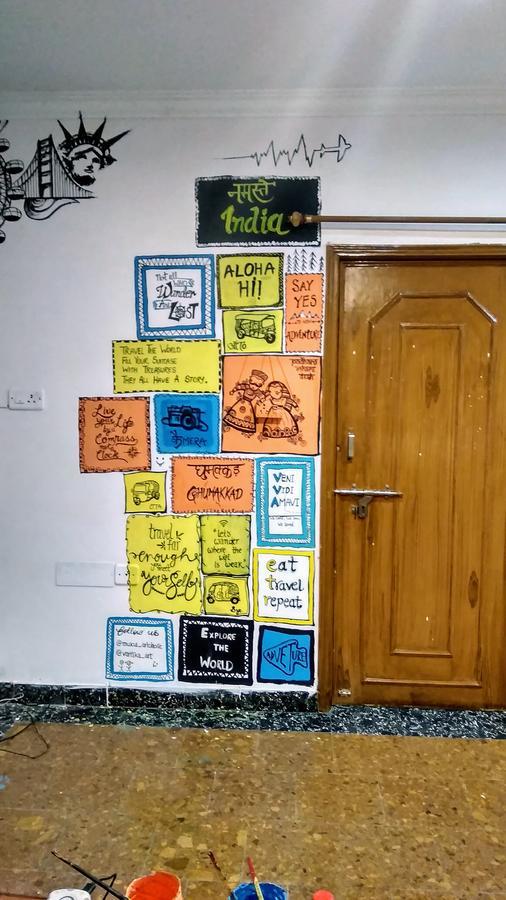 नमस्ते
India
Not all
who
Wander
are
Lost
ALOHA
HI!
SAY
YES
ADVENTURE
TRAVEL THE WORLD
FILL YOUR SUITCASE
WITH TREASURES
THEY ALL HAVE A STORY.
Live
your Life
by a
Compass
not a
Clock
कैMERA
घुमक्कड़
GHUMAKKAD
VENI
VIDI
AMAVI
travel
far
enough
you meet
yourself
"Let's
wander
where the
wifi
is weak"
eat
travel
repeat
follow us
EXPLORE
THE
WORLD
ADVENTURE